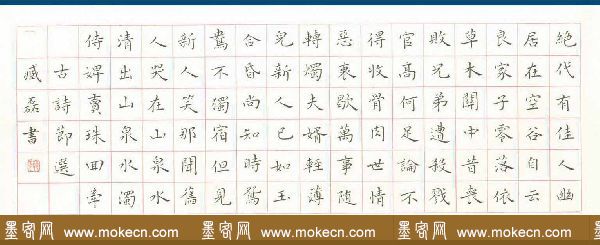 絕代有佳人幽
居在空谷自云
良家子零落依
草木關中昔喪
敗兄弟遭殺戮
官高何足論不
得收骨肉世情
惡衰歇萬事隨
轉燭夫婿輕薄
兒新人已如玉
合昏尚知時鴛
鴦不獨宿但見
新人笑那聞舊
人哭在山泉水
清出山泉水濁
侍婢賣珠回牽
古詩節選
臧磊書
墨客网 www.mokecn.com 墨客网 www.mokecn.com 墨客网 www.mokecn.com